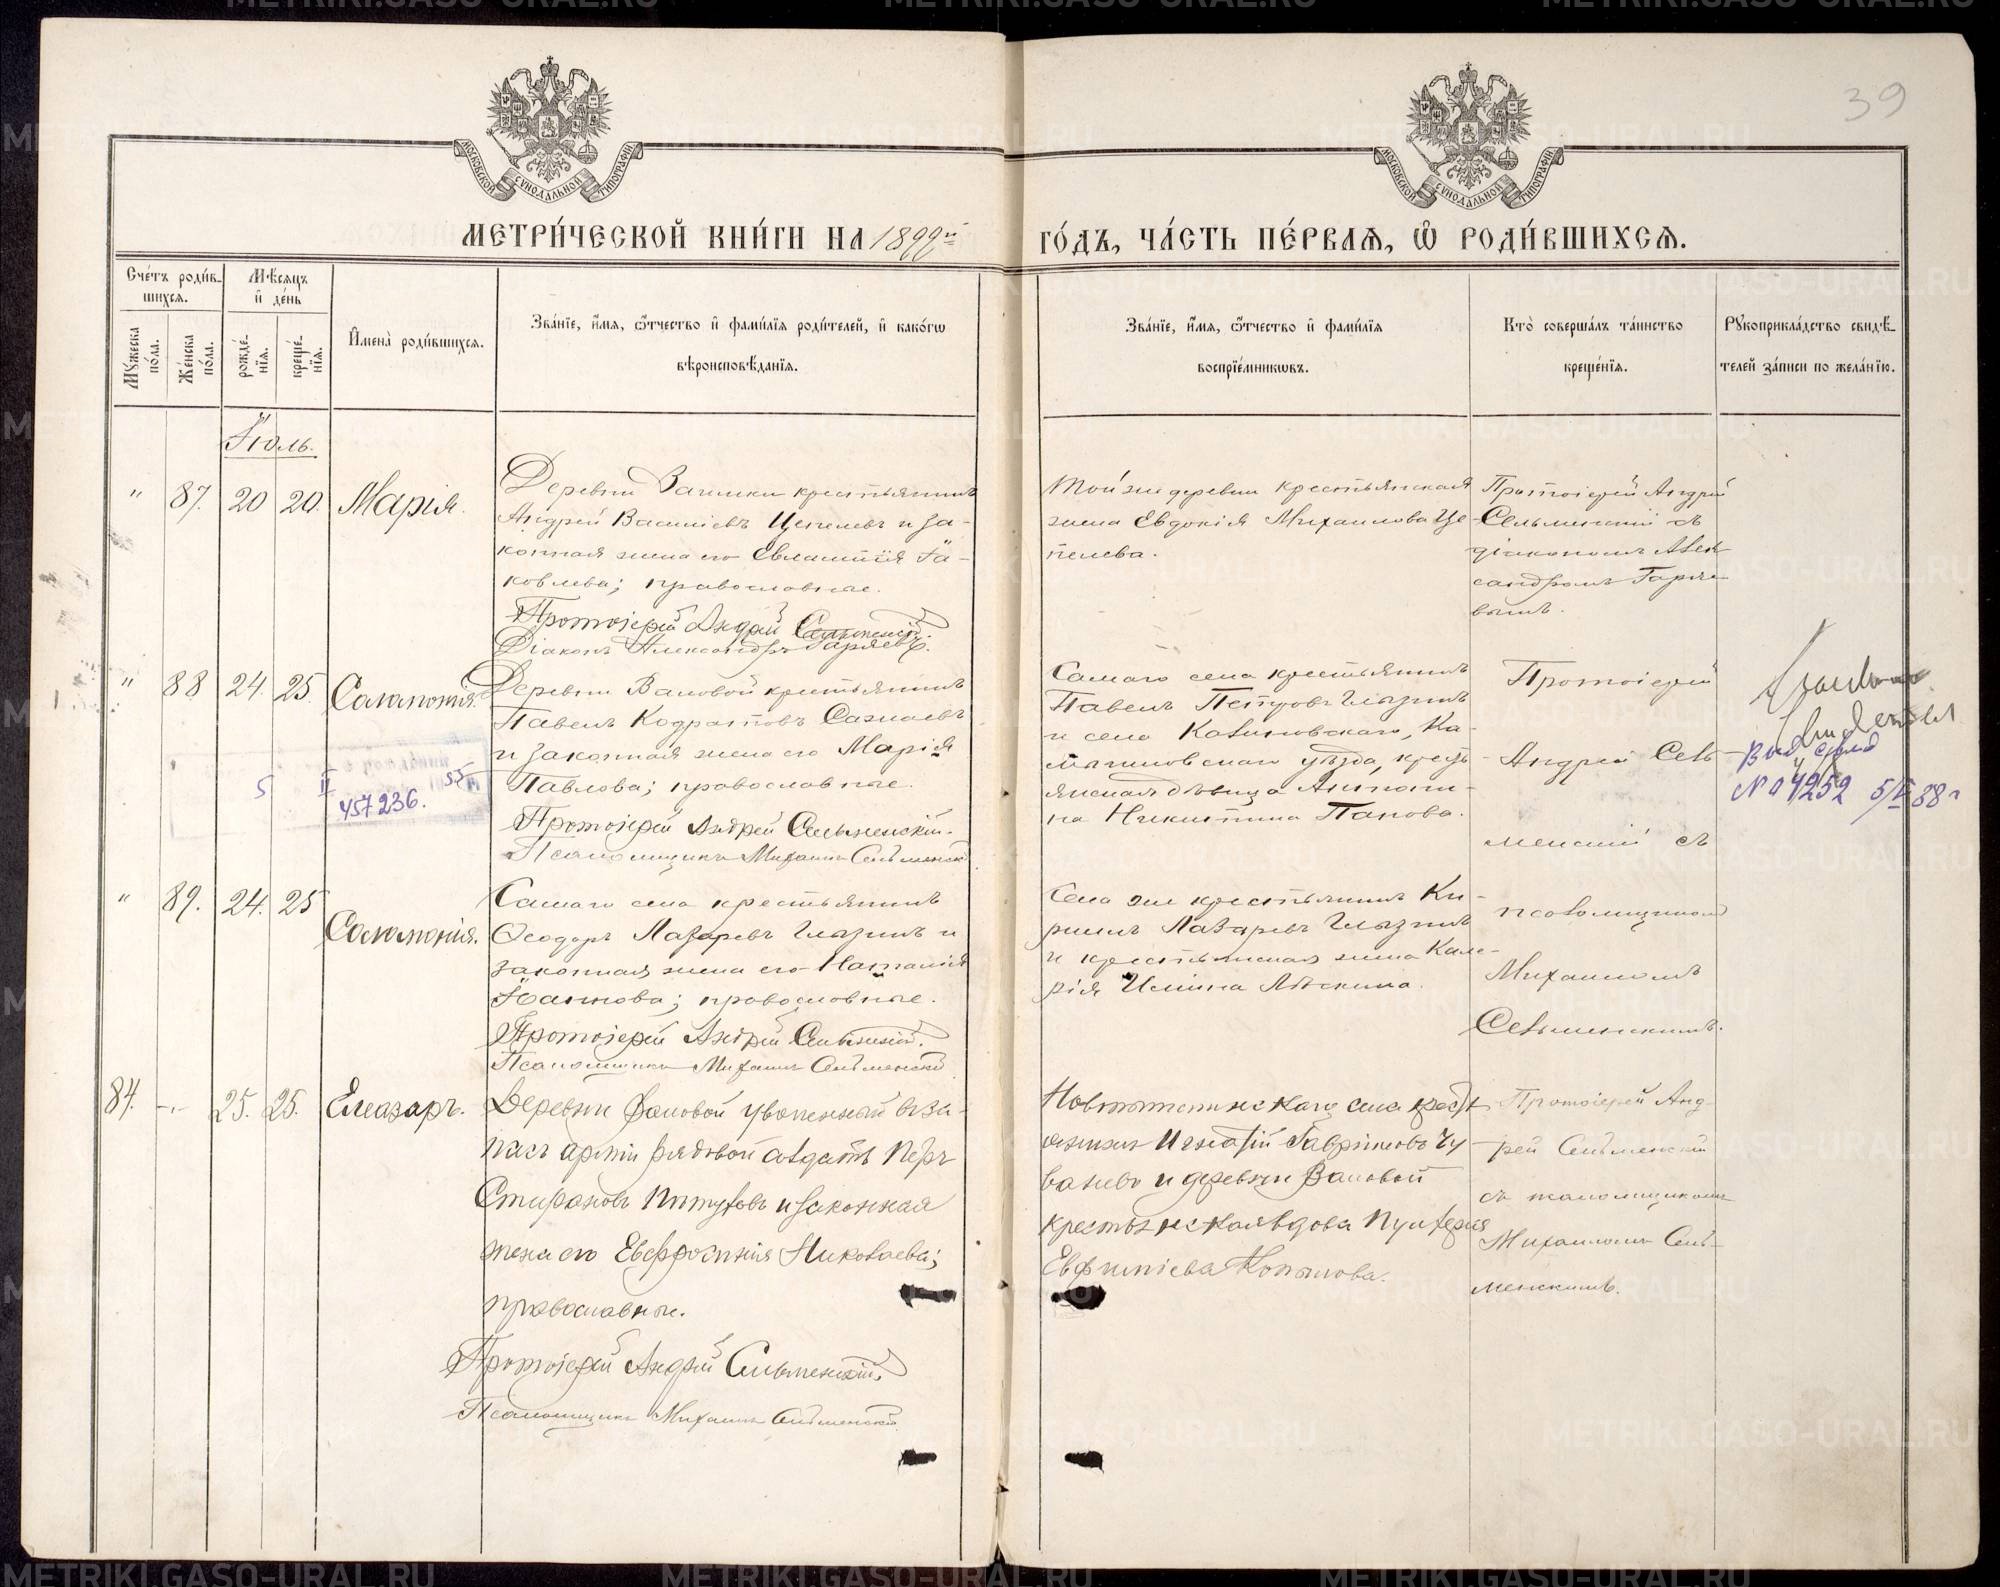 39
МОСКОВСКОЙ СѴНОДАЛЬНОЙ ТИПОГРАФІИ
МОСКОВСКОЙ СѴНОДАЛЬНОЙ ТИПОГРАФІИ
МЕТРИ́ЧЕСКОЙ КНИ́ГИ НА 1899й
ГО́ДЪ, ЧА́СТЬ ПЕ́РВАѦ, Ѽ РОДИ́ВШИХСѦ.
Сче́тъ роди́в-
шихсѧ.
Мꙋжеска по́ла.
Же́нска по́ла.
Мѣ́сѧцъ
и҆ де́нь
рожде́нїѧ.
креще́нїѧ.
И҆мена̀ роди́вшихсѧ.
Зва́нїе, и҆́мѧ, ѻ҆́тчество и҆ фами́лїѧ роди́телей, и҆ како́гѡ
вѣроисповѣ́данїѧ.
Зва́нїе, и҆́мѧ, ѻ҆́тчество и҆ фами́лїѧ
воспрїе́мникѡвъ.
Кто̀ соверша́лъ та́инство
креще́нїѧ.
Рꙋкоприкла́дство свидѣ́-
телей за́писи по жела́нїю.
Іюль.
" 87. 20 20. Марія.
Деревни крестьянинъ
Андрей Василіевъ Цепелевъ и за-
конная жена его Евлампія Іа-
ковлева; православные.
Протоіерей Андрей Сельменскій.
Діаконъ Александръ Гаряевъ.
Той же деревни крестьянская
жена Евдокія Михаилова Це-
пелева.
Протоіерей Андрей
Сельменскій съ
діакономъ Алек-
сандромъ Гаряе-
вымъ.
" 88 24. 25. Саламонія.
Деревни Валовой крестьянинъ
Павелъ Кодратовъ
и законная жена его Марія
Павлова; православные.
Протоіерей Андрей Сельменскій.
Псаломщикъ Михаилъ Сельменскій
Самаго села крестьянинъ
Павелъ Петровъ Глызинъ
и села Ка-
мышловскаго уѣзда, кресть-
янская дѣвица Антони-
на Никитина Панова.
Протоіерей
Андрей Сель-
менскій съ
псаломщикомъ
Михаиломъ
Сельменскимъ.
5 II 55
457236.
Выд
№ 04252 5/V 88 г
" 89. 24. 25 Саламонія.
Самаго села крестьянинъ
Ѳеодоръ Лазаревъ Глызинъ и
законная жена его Наталія
православные.
Протоіерей Андрей Сельменскій.
Псаломщикъ Михаилъ Сельменскій
Села же крестьянинъ Ки-
риллъ Лазаревъ Глызинъ
и крестьянская жена Кале-
рія Ильина
84. -.- 25. 25. Елеазаръ.
Деревни Валовой уволенный въ за-
пасъ арміи рядовой солдатъ Петръ
Стефановъ Пѣтуховъ и законная
жена его Евфросинія Николаева;
православные.
Протоіерей Андрей Сельменскій.
Псаломщикъ Михаилъ Сельменскій
Новопышминскаго села крест-
янинъ Игнатій Гавриловъ Чу-
валевъ и деревни Валовой
крестьянская вдова Пульхерія
Евфиміева Копылова.
Протоіерей Анд-
рей Сельменскій
съ псаломщикомъ
Михаиломъ Сель-
менскимъ.
METRIKI.GASO-URAL.RU